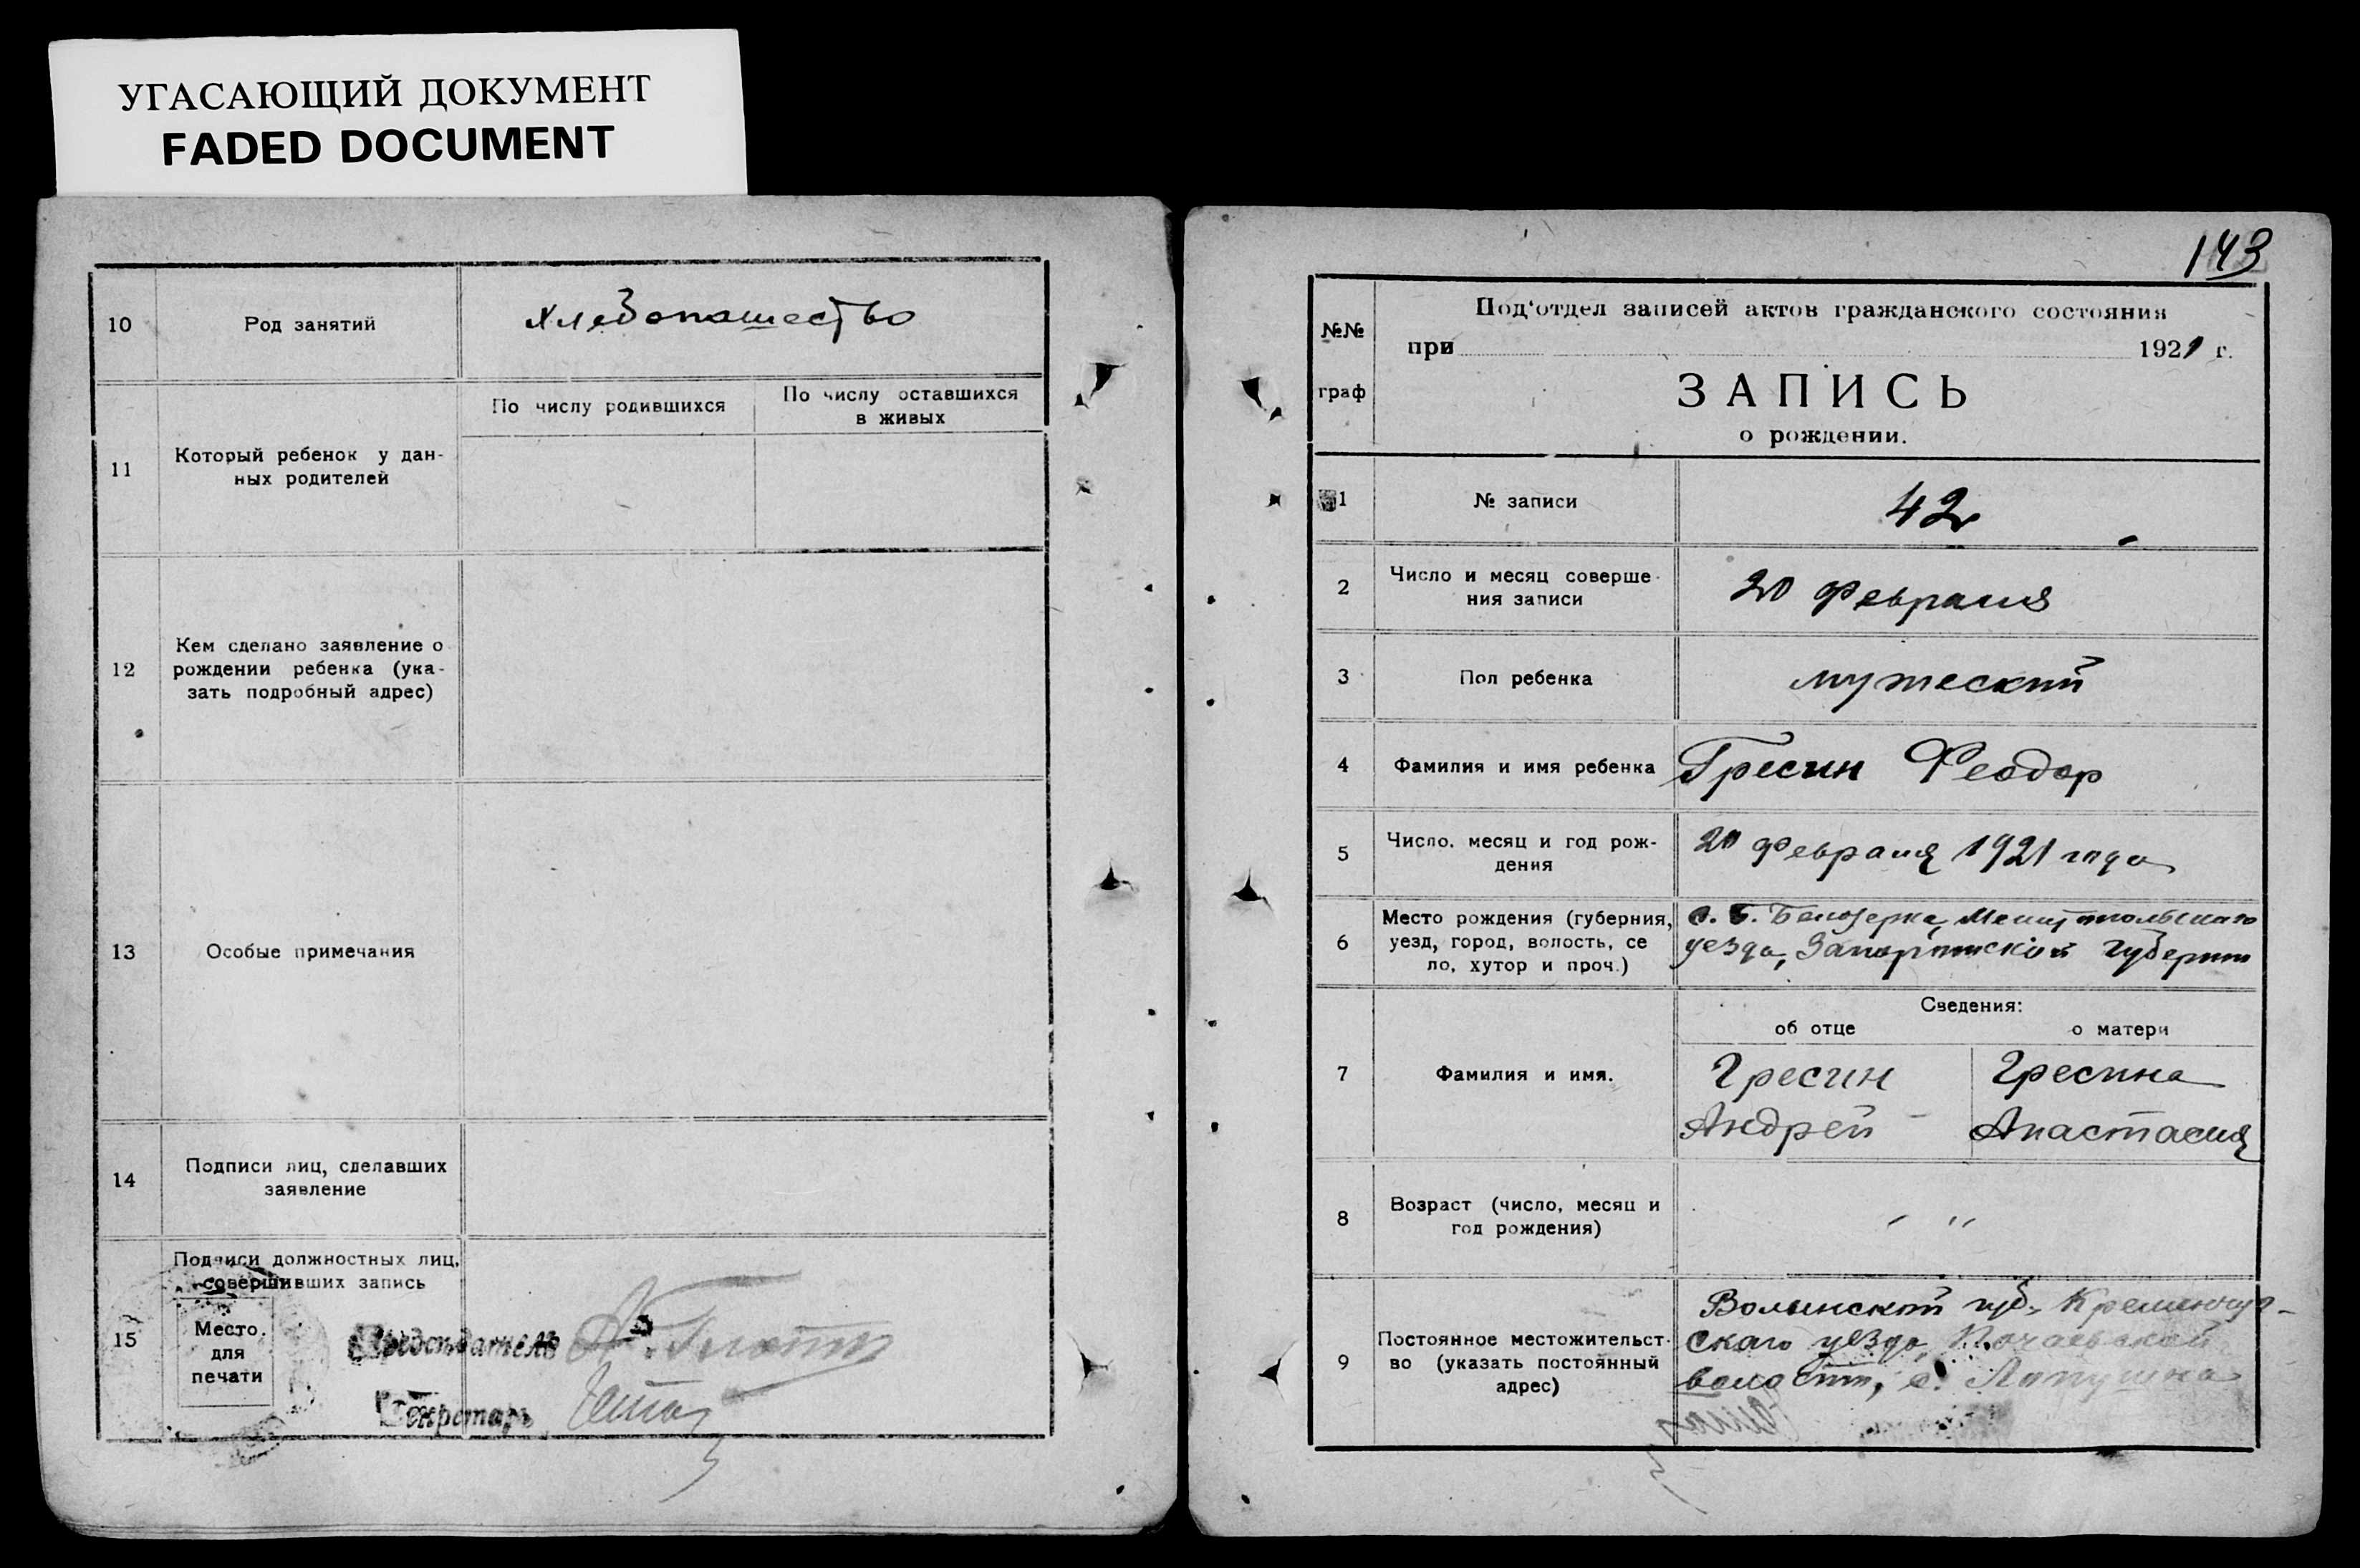 УГАСАЮЩИЙ ДОКУМЕНТ
FADED DOCUMENT
10
Род занятий
хлебопашество
11
Который ребенок у дан-
ных родителей
По числу родившихся
По числу оставшихся
в живых
12
Кем сделано заявление о
рождении ребенка (ука-
зать подробный адрес)
13
Особые примечания
14
Подписи лиц, сделавших
заявление
15
Подписи должностных лиц,
совершивших запись
Место
для
печати
Председатель
Секретарь
143
№№
граф
Под'отдел записей актов гражданского состояния
при 1921 г.
ЗАПИСЬ
о рождении.
1
№ записи
42
2
Число и месяц соверше-
ния записи
20 февраля
3
Пол ребенка
мужеский
4
Фамилия и имя ребенка
Гресин Феодор
5
Число, месяц и год рож-
дения
20 февраля 1921 года
6
Место рождения (губерния,
уезд, город, волость, се
ло, хутор и проч.)
с. Б. Белозерка, Мелитопольскаго
уезда, Запорожской губернии
7
Фамилия и имя.
Сведения:
об отце
о матери
Гресин
Андрей
Гресина
Анастасия
8
Возраст (число, месяц и
год рождения)
9
Постоянное местожительст-
во (указать постоянный
адрес)
Волынской губ., Кременчуг-
скаго уезда, Почаевской
волости, с. Лопушна